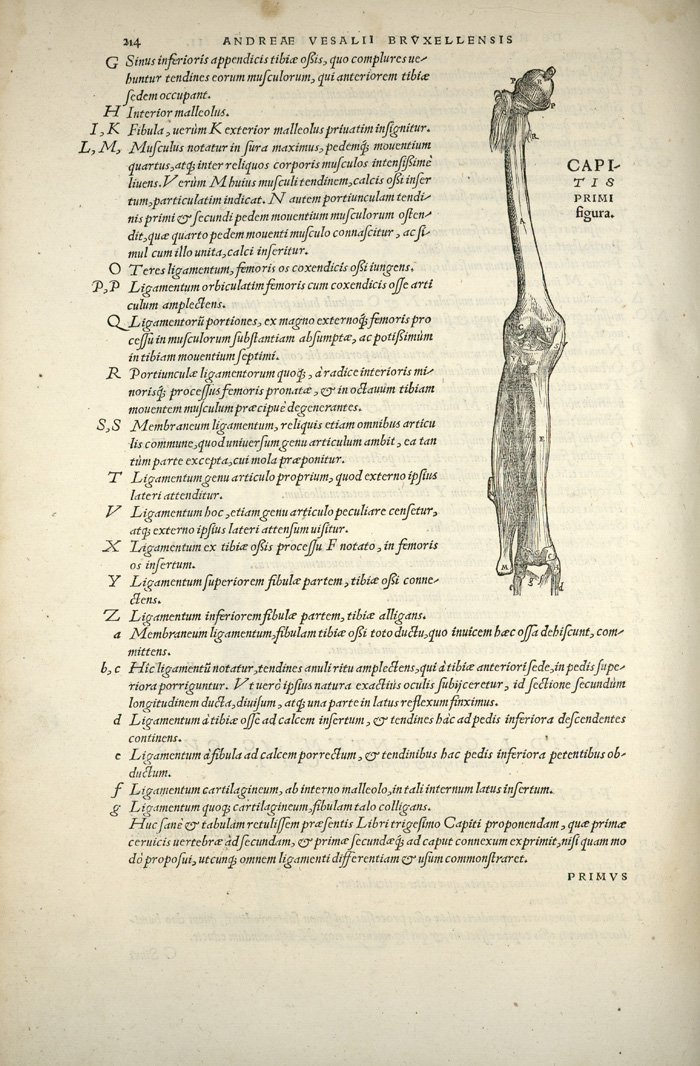 214 ANDREAE VESALII BRVXELLENSIS
G Sinus inferioris appendicis tibiæ oßis, quo complures ue-
huntur tendines eorum musculorum, qui anteriorem tibiæ
sedem occupant.
H Interior malleolus.
I, K Fibula, uerùm K exterior malleolus priuatim insignitur.
L, M, Musculus notatur in sura maximus, pedemq́; mouentium
quartus, atq́; inter reliquos corporis musculos intensißimè
liuens. Verùm M huius musculi tendinem, calcis oßi inser
tum, particulatim indicat. N autem portiunculam tendi-
nis primi & secundi pedem mouentium musculorum osten-
dit, quæ quarto pedem mouenti musculo connascitur, ac si-
mul cum illo unita, calci inseritur.
O Teres ligamentum, femoris os coxendicis oßi iungens.
P, P Ligamentum orbiculatim femoris cum coxendicis osse arti
culum amplectens.
Q Ligamentorũ portiones, ex magno externoq́; femoris pro
cessu in musculorum substantiam absumptæ, ac potißimùm
in tibiam mouentium septimi.
R Portiunculæ ligamentorum quoq́;, à radice interioris mi-
norisq́; processus femoris pronatæ, & in octauum tibiam
mouentem musculum præcipuè degenerantes.
S, S Membraneum ligamentum, reliquis etiam omnibus articu
lis commune, quod uniuersum genu articulum ambit, ea tan
tùm parte excepta, cui mola præponitur.
T Ligamentum genu articulo proprium, quod externo ipsius
lateri attenditur.
V Ligamentum hoc, etiam genu articulo peculiare censetur,
atq́; externo ipsius lateri attensum uisitur.
X Ligamentum ex tibiæ oßis processu F notato, in femoris
os insertum.
Y Ligamentum superiorem fibulæ partem, tibiæ oßi conne-
ctens.
Z Ligamentum inferiorem fibulæ partem, tibiæ alligans.
a Membraneum ligamentum, fibulam tibiæ oßi toto ductu, quo inuicem hæc ossa dehiscunt, com-
mittens.
b, c Hic ligamentũ notatur, tendines anuli ritu amplectens, qui à tibiæ anteriori sede, in pedis supe-
riora porriguntur. Vt uerò ipsius natura exactiùs oculis subijceretur, id sectione secundùm
longitudinem ducta, diuisum, atq́; una parte in latus reflexum finximus.
d Ligamentum à tibiæ osse ad calcem insertum, & tendines hàc ad pedis inferiora descendentes
continens.
e Ligamentum à fibula ad calcem porrectum, & tendinibus hac pedis inferiora petentibus ob-
ductum.
f Ligamentum cartilagineum, ab interno malleolo, in tali internum latus insertum.
g Ligamentum quoq́; cartilagineum, fibulam talo colligans.
Huc sanè & tabulam retulissem præsentis Libri trigesimo Capiti proponendam, quæ primæ
ceruicis uertebræ ad secundam, & primæ secundæq́; ad caput connexum exprimit, nisi quam mo
dò proposui, utcunq́; omnem ligamenti differentiam & usum commonstraret.
PRIMVS
CAPI-
TIS
PRIMI
figura.